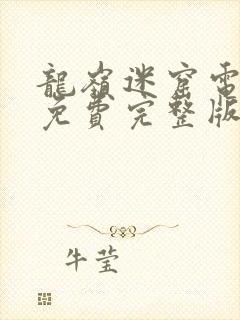 龍嶺迷窟電
免費完整版
牛莹